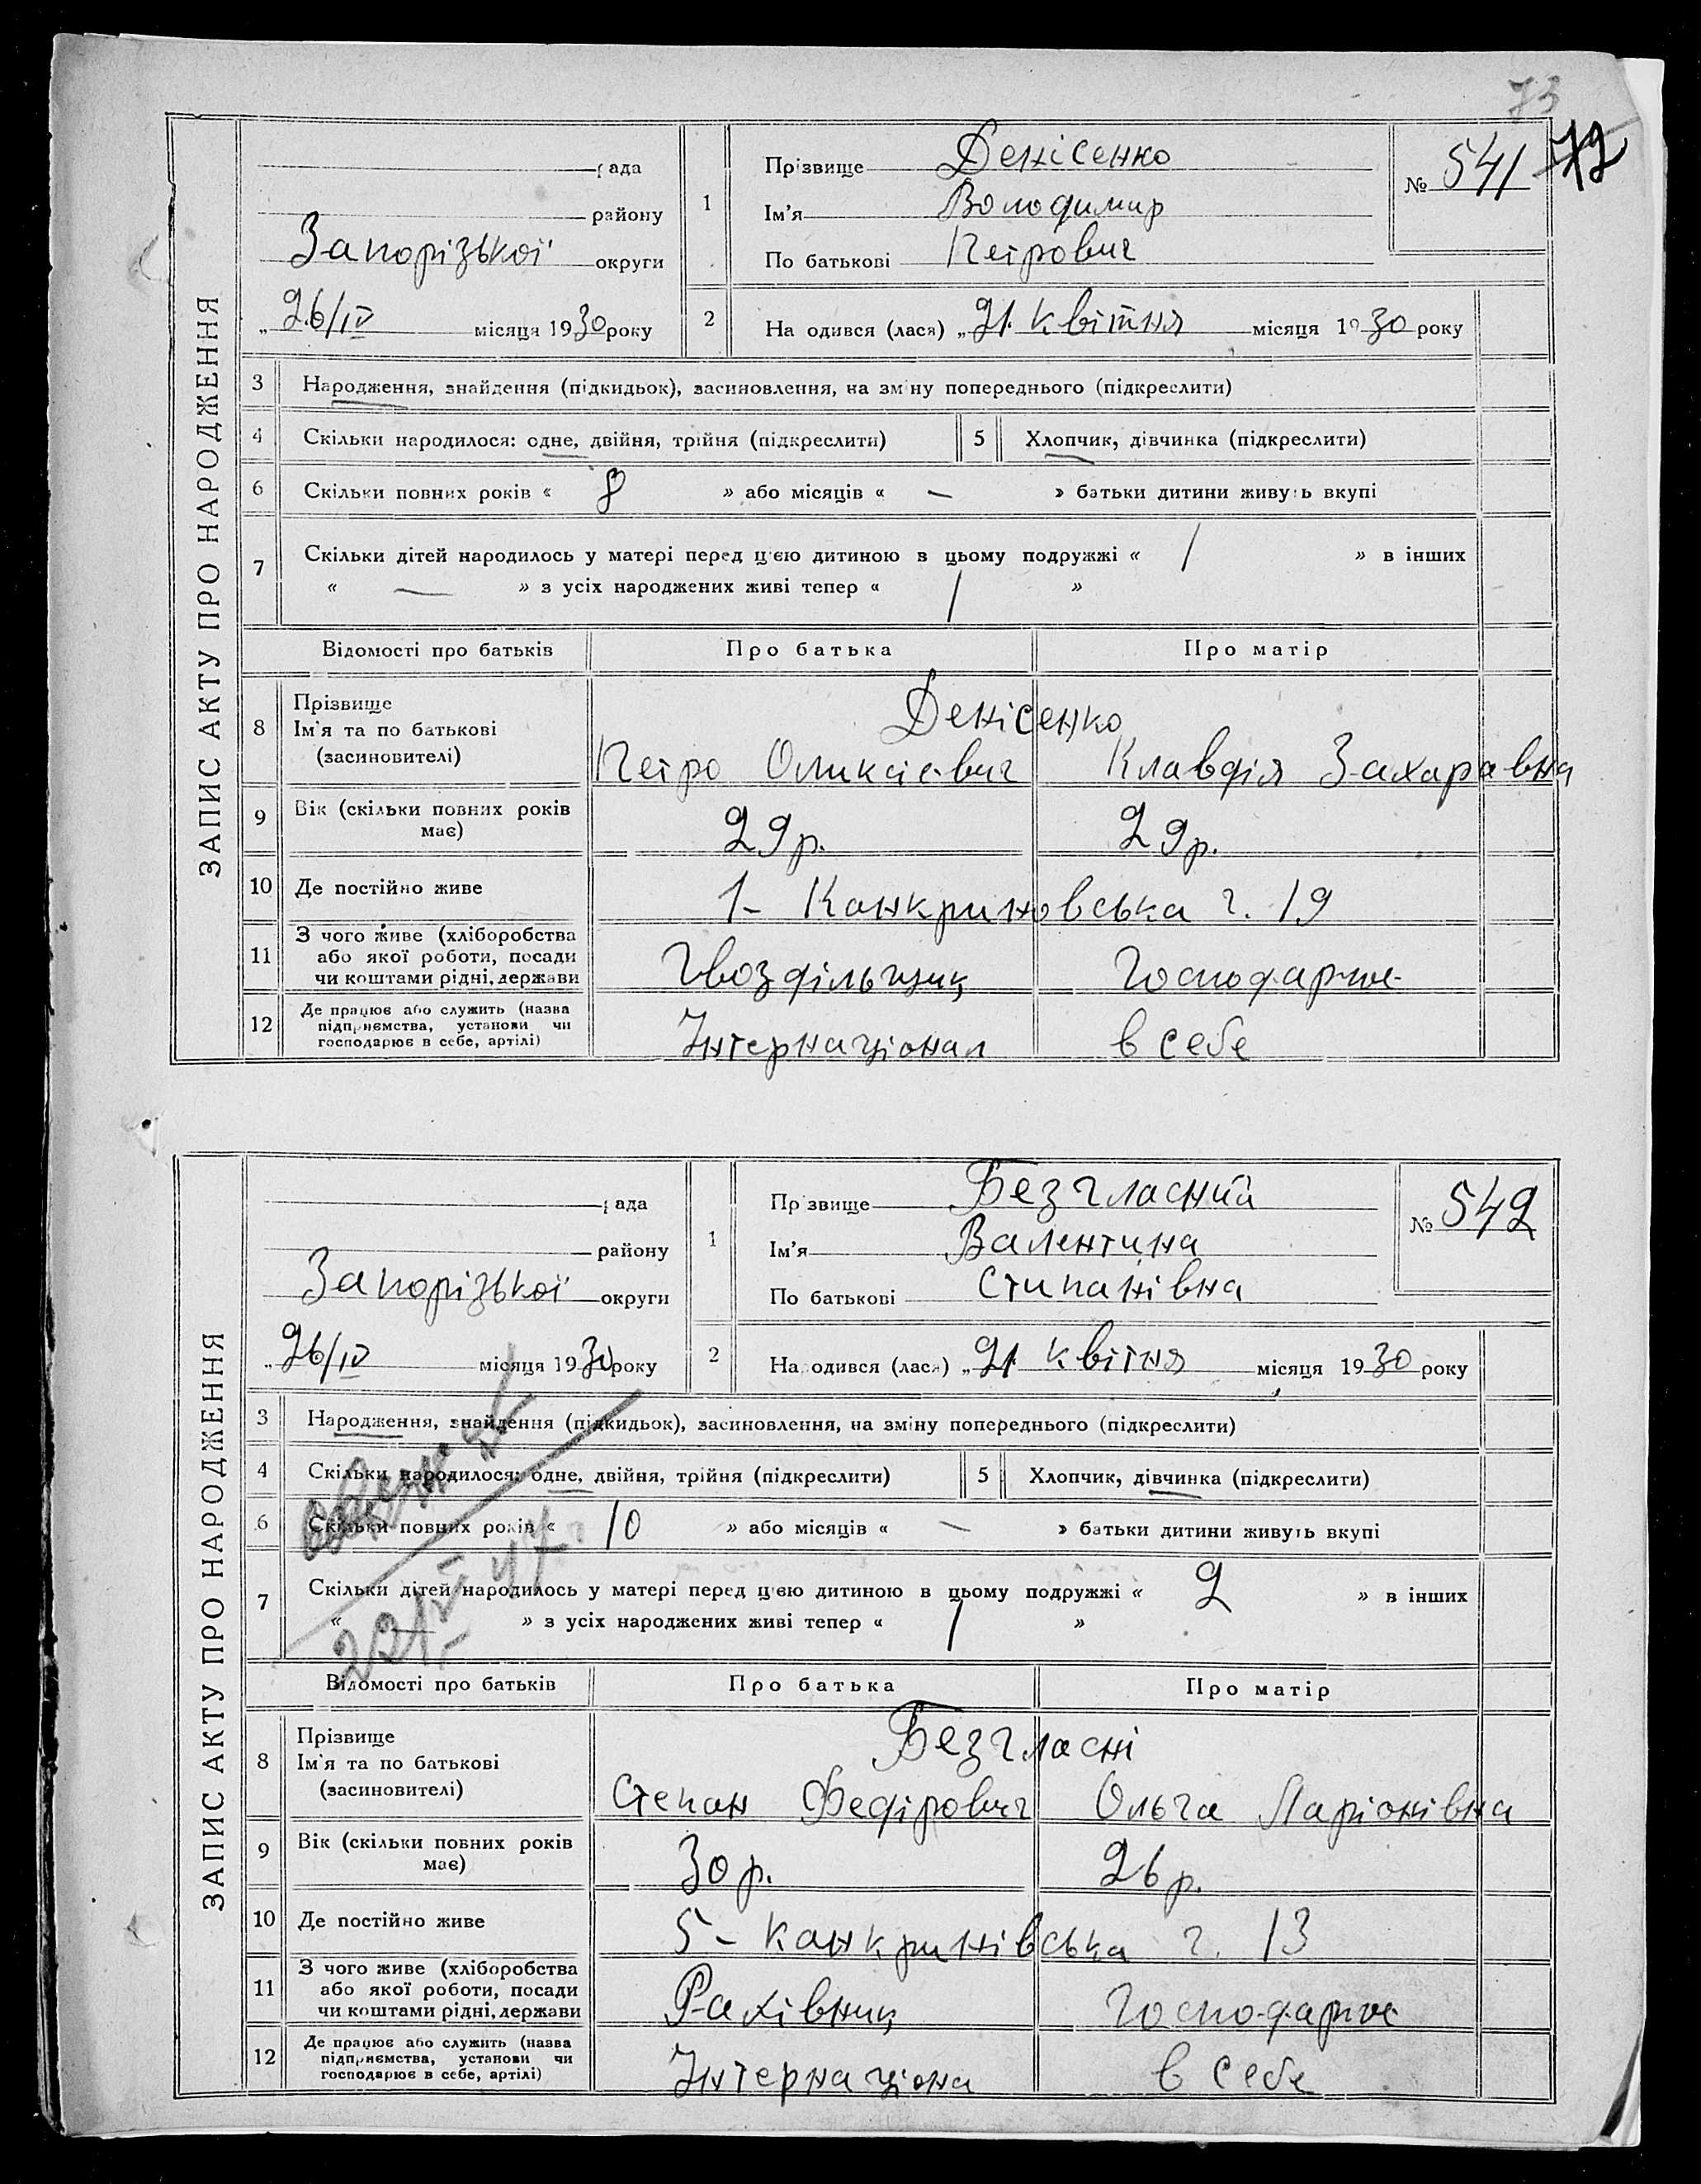 73
72
ЗАПИС АКТУ ПРО НАРОДЖЕННЯ
рада
району
Запорізької округи
„26/IV місяця 1930 року
1
Прізвище Денісенко
Ім'я Володимир
По батькові Петрович
№ 541
2 Народився (лася) „21 квітня місяця 1930 року
3 Народження, знайдення (підкидьок), засиновлення, на зміну попереднього (підкреслити)
4 Скільки народилося: одне, двійня, трійня (підкреслити) 5 Хлопчик, дівчинка (підкреслити)
6 Скільки повних років « 8 » або місяців « — » батьки дитини живуть вкупі
7 Скільки дітей народилось у матері перед цією дитиною в цьому подружжі « 1 » в інших
« — » з усіх народжених живі тепер « 1 »
Відомості про батьків Про батька Про матір
8 Прізвище Денісенко
Ім'я та по батькові
(засиновителі) Петро Оликсієвич Клавдія Захаравна
9 Вік (скільки повних років має) 29 р. 29 р.
10 Де постійно живе 1- Канкриновська ч. 19
11 З чого живе (хліборобства
або якої роботи, посади
чи коштами рідні, держави Гвоздільщик Господарює
12 Де працює або служить (назва
підприємства, установи чи
господарює в себе, артілі) Інтернаціонал в себе
ЗАПИС АКТУ ПРО НАРОДЖЕННЯ
рада
району
Запорізької округи
„26/IV місяця 1930 року
1
Прізвище Безгласний
Ім'я Валентина
По батькові Стипанівна
№ 542
2 Народився (лася) „21 квітня місяця 1930 року
3 Народження, знайдення (підкидьок), засиновлення, на зміну попереднього (підкреслити)
4 Скільки народилося: одне, двійня, трійня (підкреслити) 5 Хлопчик, дівчинка (підкреслити)
6 Скільки повних років « 10 » або місяців « — » батьки дитини живуть вкупі
7 Скільки дітей народилось у матері перед цією дитиною в цьому подружжі « 2 » в інших
« — » з усіх народжених живі тепер « 1 »
Відомості про батьків Про батька Про матір
8 Прізвище Безгласні
Ім'я та по батькові
(засиновителі) Степан Федірович Ольга Ларіонівна
9 Вік (скільки повних років має) 30 р. 26 р.
10 Де постійно живе 5- Канкринівська ч. 13
11 З чого живе (хліборобства
або якої роботи, посади
чи коштами рідні, держави Рахівник Господарює
12 Де працює або служить (назва
підприємства, установи чи
господарює в себе, артілі) Інтернаціона в себе